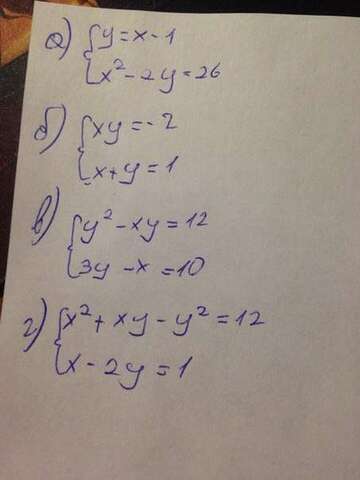 а) { y = x - 1
x² - 2y = 26
б) { xy = -2
x + y = 1
в) { y² - xy = 12
3y - x = 10
г) { x² + xy - y² = 12
x - 2y = 1